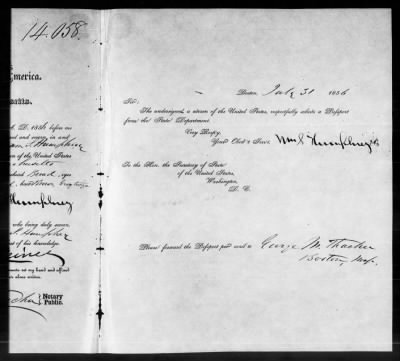 14.058.
merica.
D. 1856 before me
and
n of the United States
eyes
hair Brown
Humphrey
who being duly sworn
S. Humphrey
est of his knowledge
my hand and official
above written.
Notary
Public.
Boston, July 31 1856
Sir:
The undersigned, a citizen of the United States, respectfully solicits a Passport
from the State Department.
Very Respy.
Your Obdt. Servt. Wm. S. Humphrey
To the Hon. the Secretary of State
of the United States,
Washington,
D. C.
Please forward the Passport per mail to George M. Thacher
Boston, Mass.